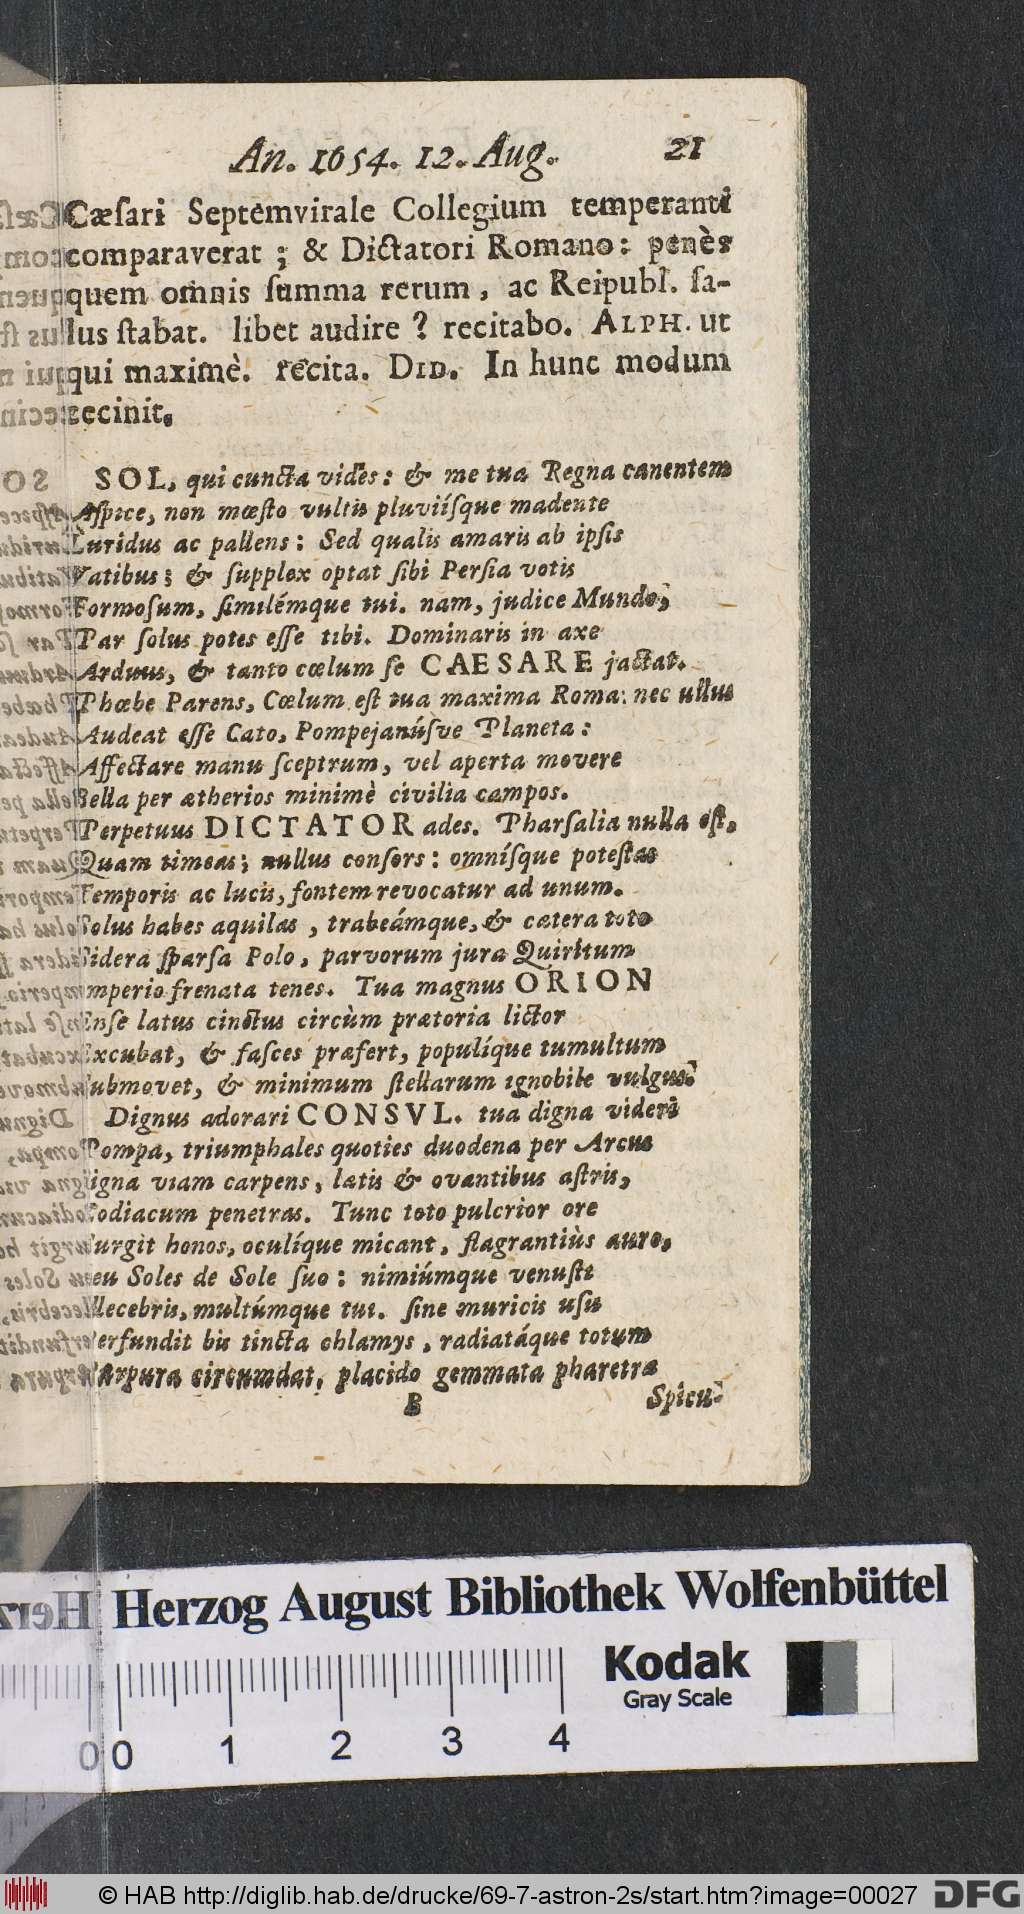 An. 1654. 12. Aug. 21
Cæſari Septemvirale Collegium temperanti
comparaverat ; & Dictatori Romano: penès
quem omnis ſumma rerum, ac Reipubl. ſa-
lus ſtabat. libet audire ? recitabo. ALPH. ut
qui maximè. recita. DID. In hunc modum
cecinit.
SOL, qui cuncta vides: & me tua Regna canentem
Aſpice, non mœſto vultu pluviíſque madente
Luridus ac pallens: Sed qualis amaris ab ipſis
Vatibus; & ſupplex optat ſibi Perſia votis
Formoſum, ſimilémque tui. nam, judice Mundo,
Par ſolus potes eſſe tibi. Dominaris in axe
Arduus, & tanto cœlum ſe CAESARE jactat.
Phœbe Parens, Cœlum eſt tua maxima Roma: nec ullus
Audeat eſſe Cato, Pompejanúſve Planeta:
Affectare manu ſceptrum, vel aperta movere
Bella per ætherios minimè civilia campos.
Perpetuus DICTATOR ades. Pharſalia nulla eſt,
Quam timeas; nullus conſors: omníſque poteſtas
Temporis ac lucis, fontem revocatur ad unum.
Solus habes aquilas, trabeámque, & cætera toto
Sidera ſparſa Polo, parvorum jura Quiritum
Imperio frenata tenes. Tua magnus ORION
Enſe latus cinctus circùm prætoria lictor
Excubat, & faſces præfert, populíque tumultum
Submovet, & minimum ſtellarum ignobile vulgus.
Dignus adorari CONSVL. tua digna videri
Pompa, triumphales quoties duodena per Arcus
Signa viam carpens, lætis & ovantibus aſtris,
Zodiacum penetras. Tunc toto pulcrior ore
Surgit honos, oculíque micant, flagrantiùs auro,
ceu Soles de Sole ſuo: nimiúmque venuſti
Illecebris, multúmque tui. ſine muricis uſu
Perfundit bis tincta chlamys, radiatáque totum
Purpura circumdat, placido gemmata pharetra
B Spicu-
Herzog August Bibliothek Wolfenbüttel
Kodak
Gray Scale
0 0 1 2 3 4
© HAB http://diglib.hab.de/drucke/69-7-astron-2s/start.htm?image=00027 DFG